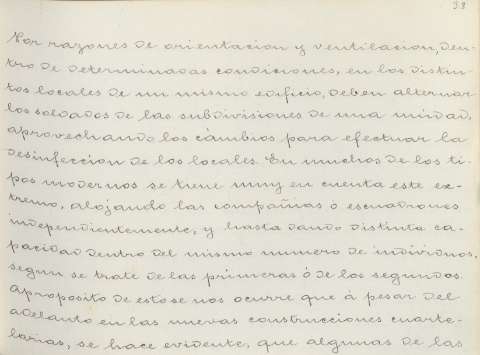 38
Por razones de orientacion y ventilacion, den-
tro de determinadas condiciones, en los distin-
tos locales de un mismo edificio, deben alternar
los soldados de las subdivisiones de una unidad,
aprovechando los cambios para efectuar la
desinfeccion de los locales. En muchos de los ti-
pos modernos se tiene muy en cuenta este ex-
tremo, alojando las compañias o escuadrones
independientemente, y hasta dando distinta ca-
pacidad dentro del mismo numero de individuos,
segun se trate de las primeras ó de los segundos.
Aproposito de esto se nos ocurre que á pesar del
adelanto en las nuevas construcciones cuarte-
larias, se hace evidente, que algunas de las